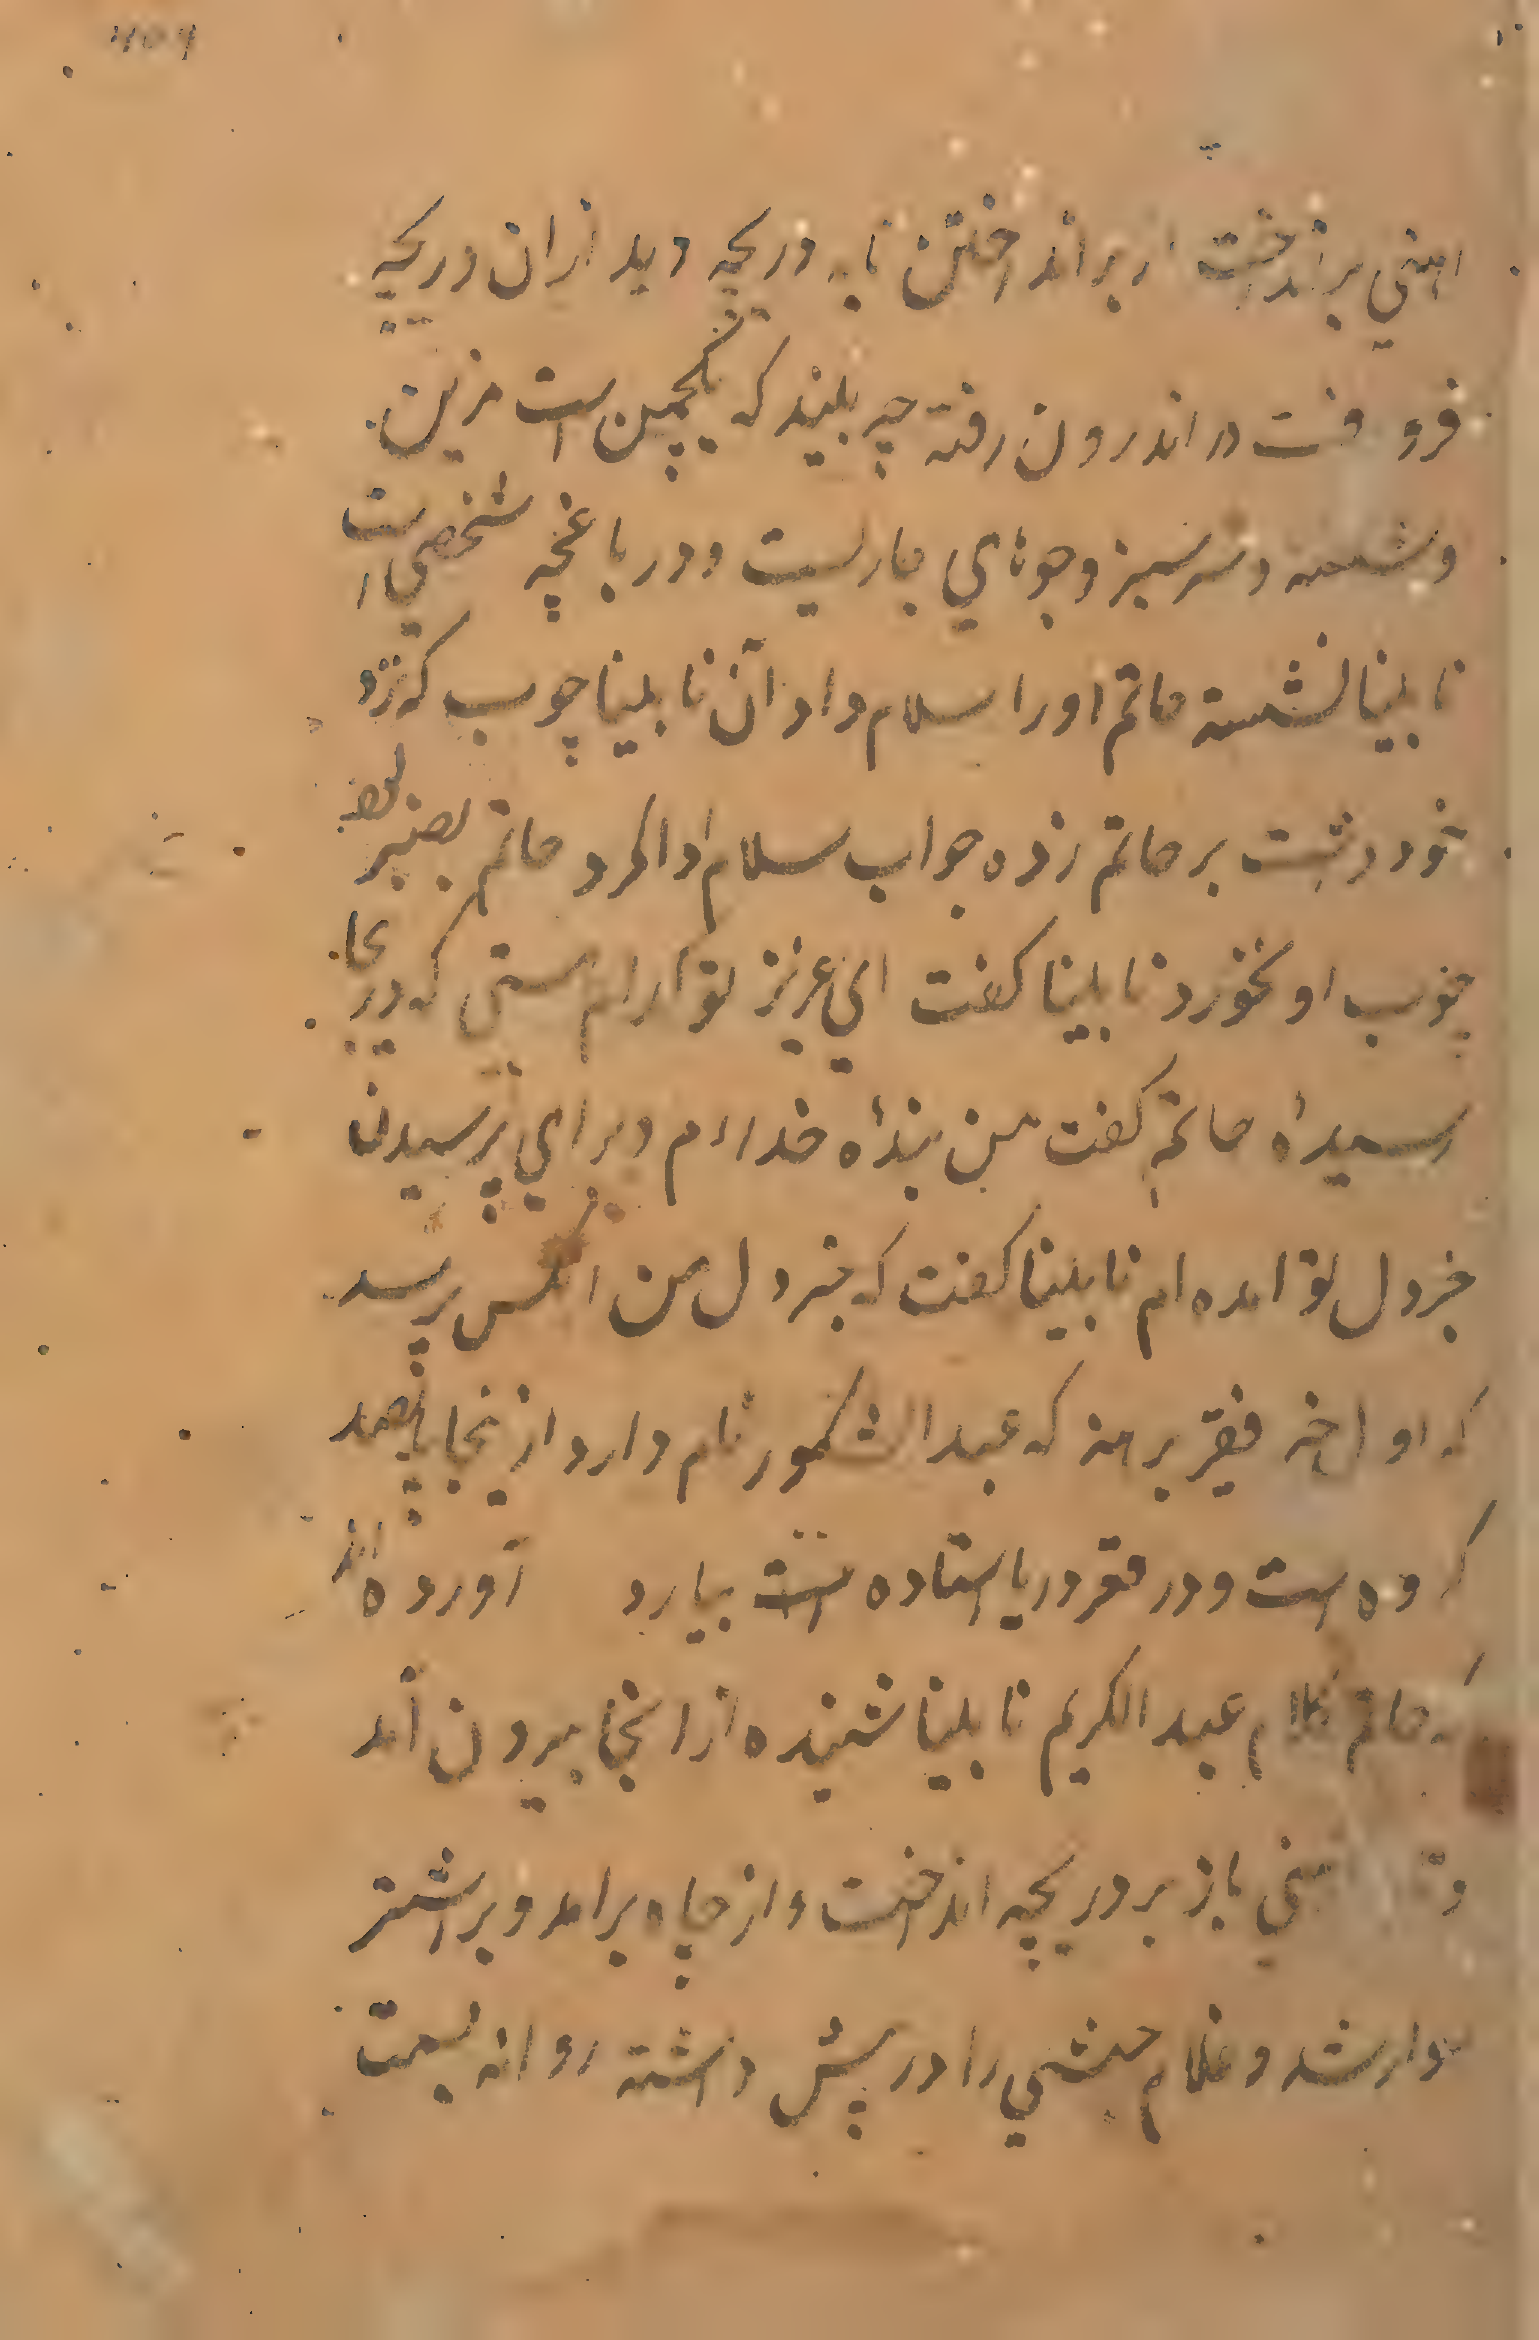 اهنی برنداخت از برانداختن تابه دریچه دید ازان دریچه
فرو رفت در اندرون رفته چه بلیند که یکچمن است مزین
و سرسبز وجوهای جاریست ودر باغچه شخصی است
نابینا نشسته حاتم اورا سلام داد آن نابینا چوب که نزد
خود داشت بر حاتم زده جواب سلام ادا کرد حاتم
چوب او نخورد نابینا کفت ای عزیز تو کدام هستی که درینجا
رسیدهٔ حاتم کفت من بندهٔ خدا ام وبرای پرسیدن
خبر دل تو امده ام نابینا کفت که خبر دل من انکس پرسد
که اول فقیر برهنه که عبد الشکور نام دارد ازینجا پانصد
کروه است ودر قعر دریا استاده است بیارد آورده اند
که حاتم کلام عبد الکریم نابینا شنیده ازانجا بیرون آمد
اهنی باز بر دریچه انداخت واز چاه برامد وبر اشتر
سوار شد وغلام حبشی را در پیش داشته روانه بسمت